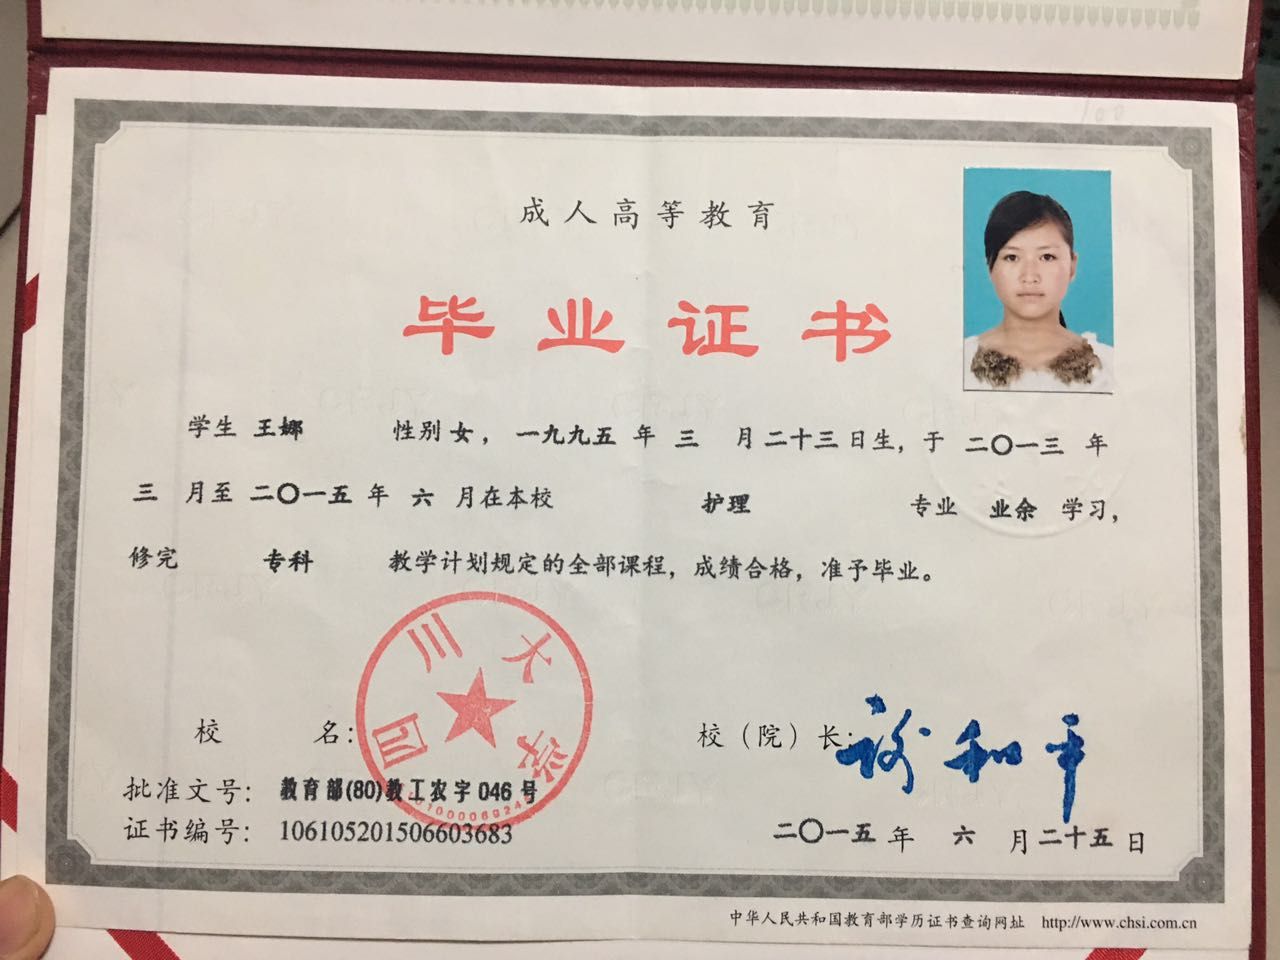 100
成人高等教育
毕业证书
学生 王娜 性别 女，一九九五 年 三 月 二十三 日生，于 二〇一三 年
三 月至 二〇一五 年 六 月在本校 护理 专业 业余 学习，
修完 专科 教学计划规定的全部课程，成绩合格，准予毕业。
四川大学
校 名：
校（院）长：谢和平
批准文号：教育部(80)教工农字046号
证书编号：106105201506603683
二〇一五 年 六 月 二十五 日
中华人民共和国教育部学历证书查询网址 http://www.chsi.com.cn